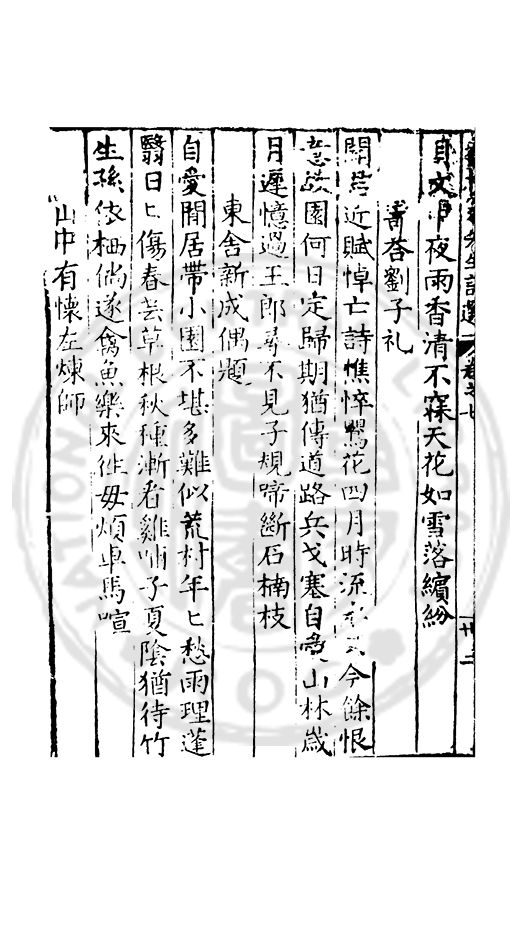 夜雨香清不寐天花如雪落繽紛
寄荅劉子礼
聞君近賦悼亡詩憔悴鶯花四月時今餘恨
故園何日定歸期猶傳道路兵戈塞自山林歲
月遲憶過王郎尋不見子規啼斷石楠枝
東舍新成偶題
自愛閒居帶小園不堪多難似荒村年〻愁雨理蓬
翳日〻傷春芸草根秋種漸看雞哺子夏陰猶待竹
生孫依栖倘遂禽魚樂來往毋煩車馬喧
山中有懷左煉師